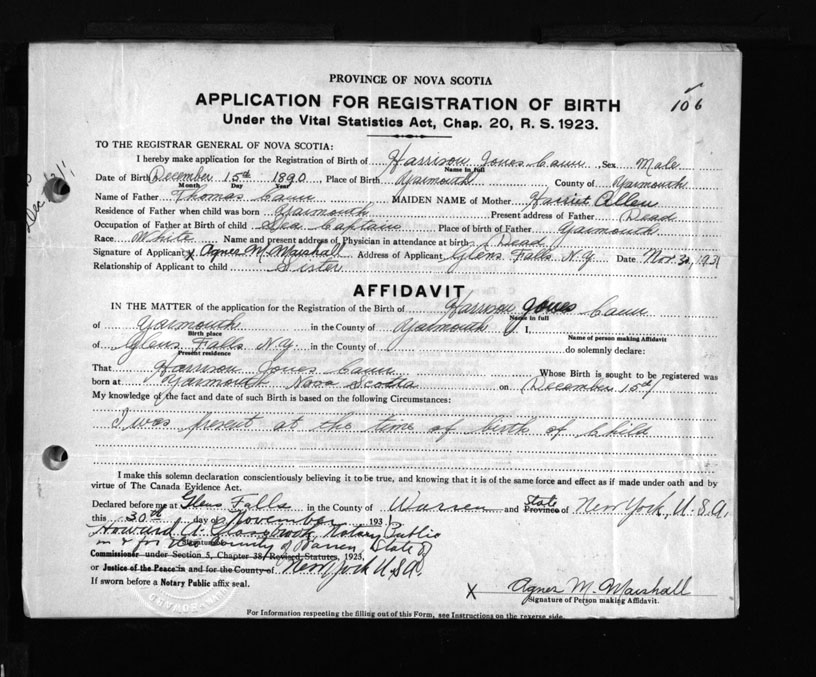 PROVINCE OF NOVA SCOTIA
APPLICATION FOR REGISTRATION OF BIRTH 106
Under the Vital Statistics Act, Chap. 20, R. S. 1923.
TO THE REGISTRAR GENERAL OF NOVA SCOTIA:
I hereby make application for the Registration of Birth of Harrison Jones Cann Sex Male
Name in full
Date of Birth December 15th 1890 Place of Birth Yarmouth County of Yarmouth
Month Day Year
Name of Father Thomas Cann MAIDEN NAME of Mother Harriet Allen
Residence of Father when child was born Yarmouth Present address of Father Dead
Occupation of Father at Birth of child Sea Captain Place of birth of Father Yarmouth
Race White Name and present address of Physician in attendance at birth Dead
Signature of Applicant X Agnes M. Marshall Address of Applicant Glens Falls N.Y. Date Nov. 30, 1931
Relationship of Applicant to child Sister
AFFIDAVIT
IN THE MATTER of the application for the Registration of the Birth of Harrison Jones Cann
Name in full
of Yarmouth in the County of Yarmouth I,
Birth place Name of person making Affidavit
of Glens Falls N.Y. in the County of do solemnly declare:
Present residence
That Harrison Jones Cann Whose Birth is sought to be registered was
born at Yarmouth Nova Scotia on December 15th
My knowledge of the fact and date of such Birth is based on the following Circumstances:
I was present at the time of birth of Child
I make this solemn declaration conscientiously believing it to be true, and knowing that it is of the same force and effect as if made under oath and by
virtue of The Canada Evidence Act.
Declared before me at Glens Falls in the County of Warren and State Province of New York, U.S.A.
this 30th day of November 1931
Howard A. Notary Public
in & for the County of Warren, State of
Commissioner under Section 5, Chapter 38, Revised Statutes, 1923,
or Justice of the Peace in and for the County of New York U.S.A.
If sworn before a Notary Public affix seal.
X Agnes M. Marshall
Signature of Person making Affidavit.
For Information respecting the filling out of this Form, see Instructions on the reverse side.